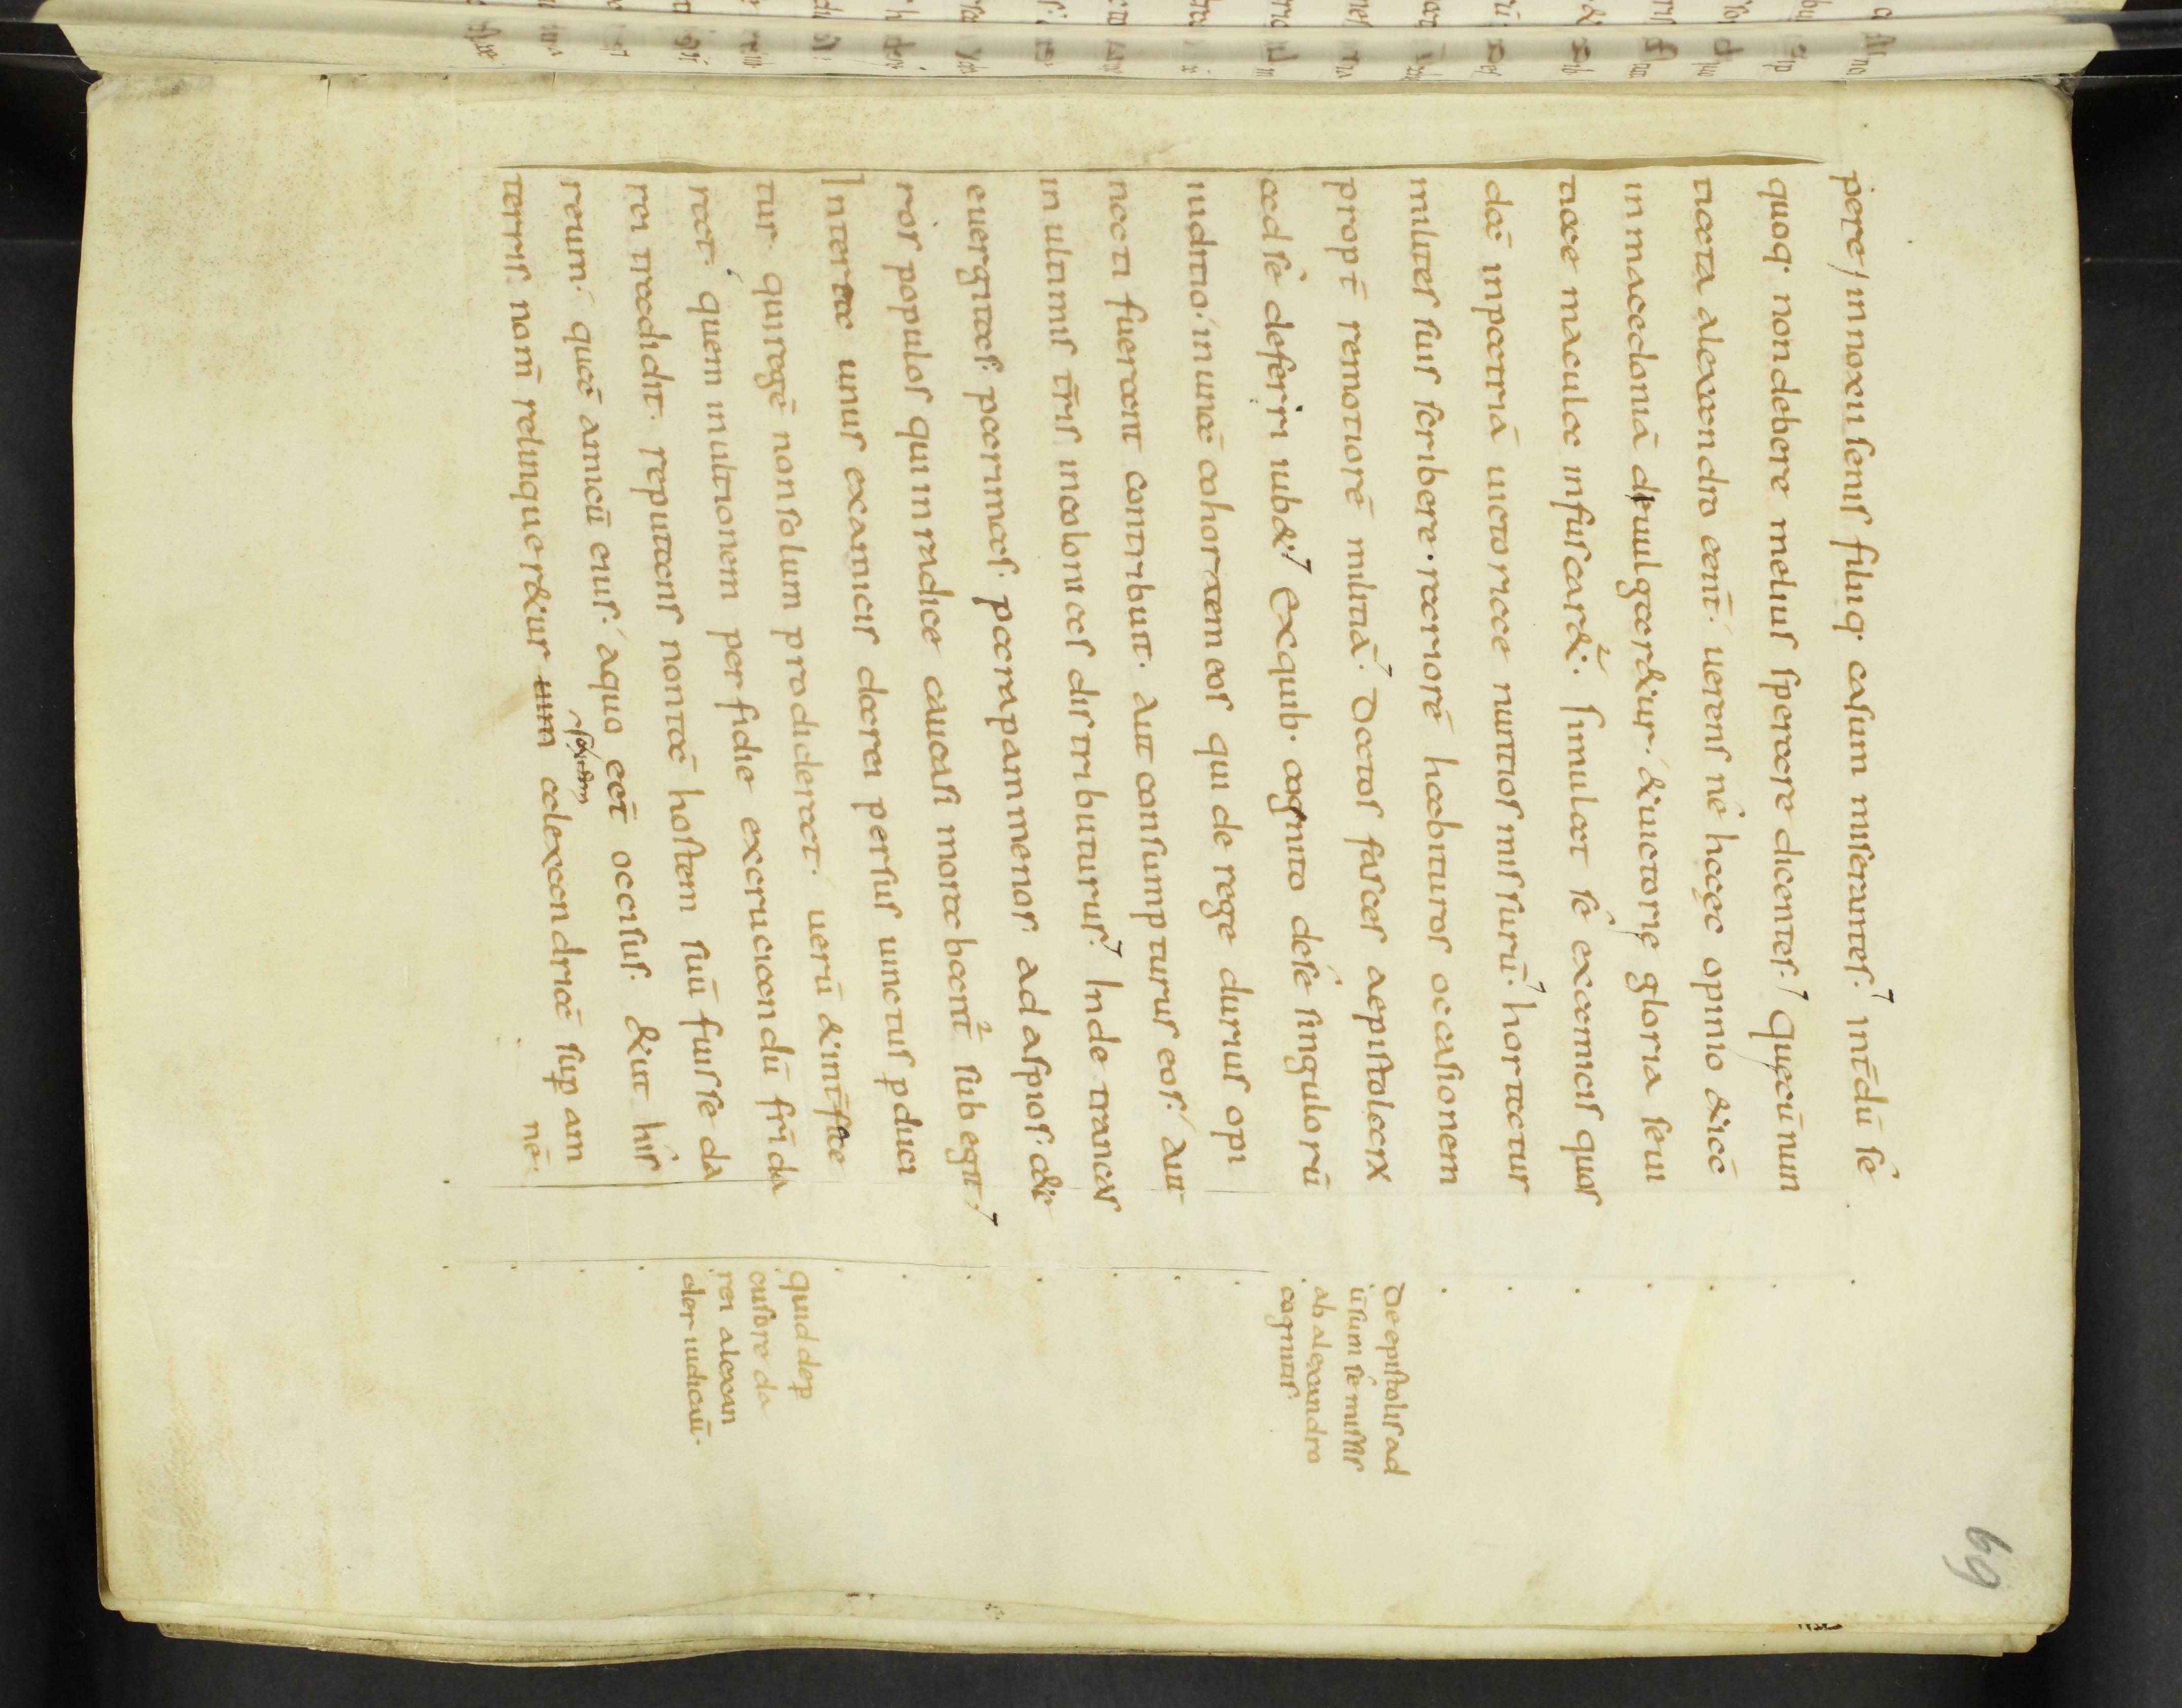 pere / innoxiu senis filiiq. casum miserantes. int̄dū sé
quoq. non debere melius sperare dicentes. quę cū nun
tiata alexandro eēnt. uerens né haęc opinio & iā
in macedoniā diuulgar&ur. & uictorię gloria seui
tiae macula infuscar&. simulat sé examicis quos
dā inpatriā uictoriae nuntios missurū. hortatur
milites suis scribere. rariorē habituros occasionem
propt̄ remotiorē militiā. Datos fasces aepistolarx
adsé deferri iub&. Exquib. cognito desé singulorū
iuditio. in unā cohortem eos qui de rege durius opi
nati fuerant contribuit. aut consumpturus eos. aut
in ultimis t̄ris incolonias distributurus. Inde trancas
euergitas. parimas. parapammenos. adaspios. & cę
ros populos qui in radice caucasi morabant̄ subegit.
Interea unus examicis darei persus uinctus pduci
tur qui regē non solum prodiderat. uerū & int̄ fice
rat. quem inultionem perfidie excruciandū fr̄i da
rei tradidit. reputans non tā hostem suū fuisse da
reum. quā amicū eius. aquo eēt occisus. & ut his
terris. nom̄ relinquer&ur um alexandriā sup am
nē.
De epistolis ad
ūsum sé missis
ab alexandro
cognitis.
quid dep
cussore da
rei alexan
der iudicaū.
69